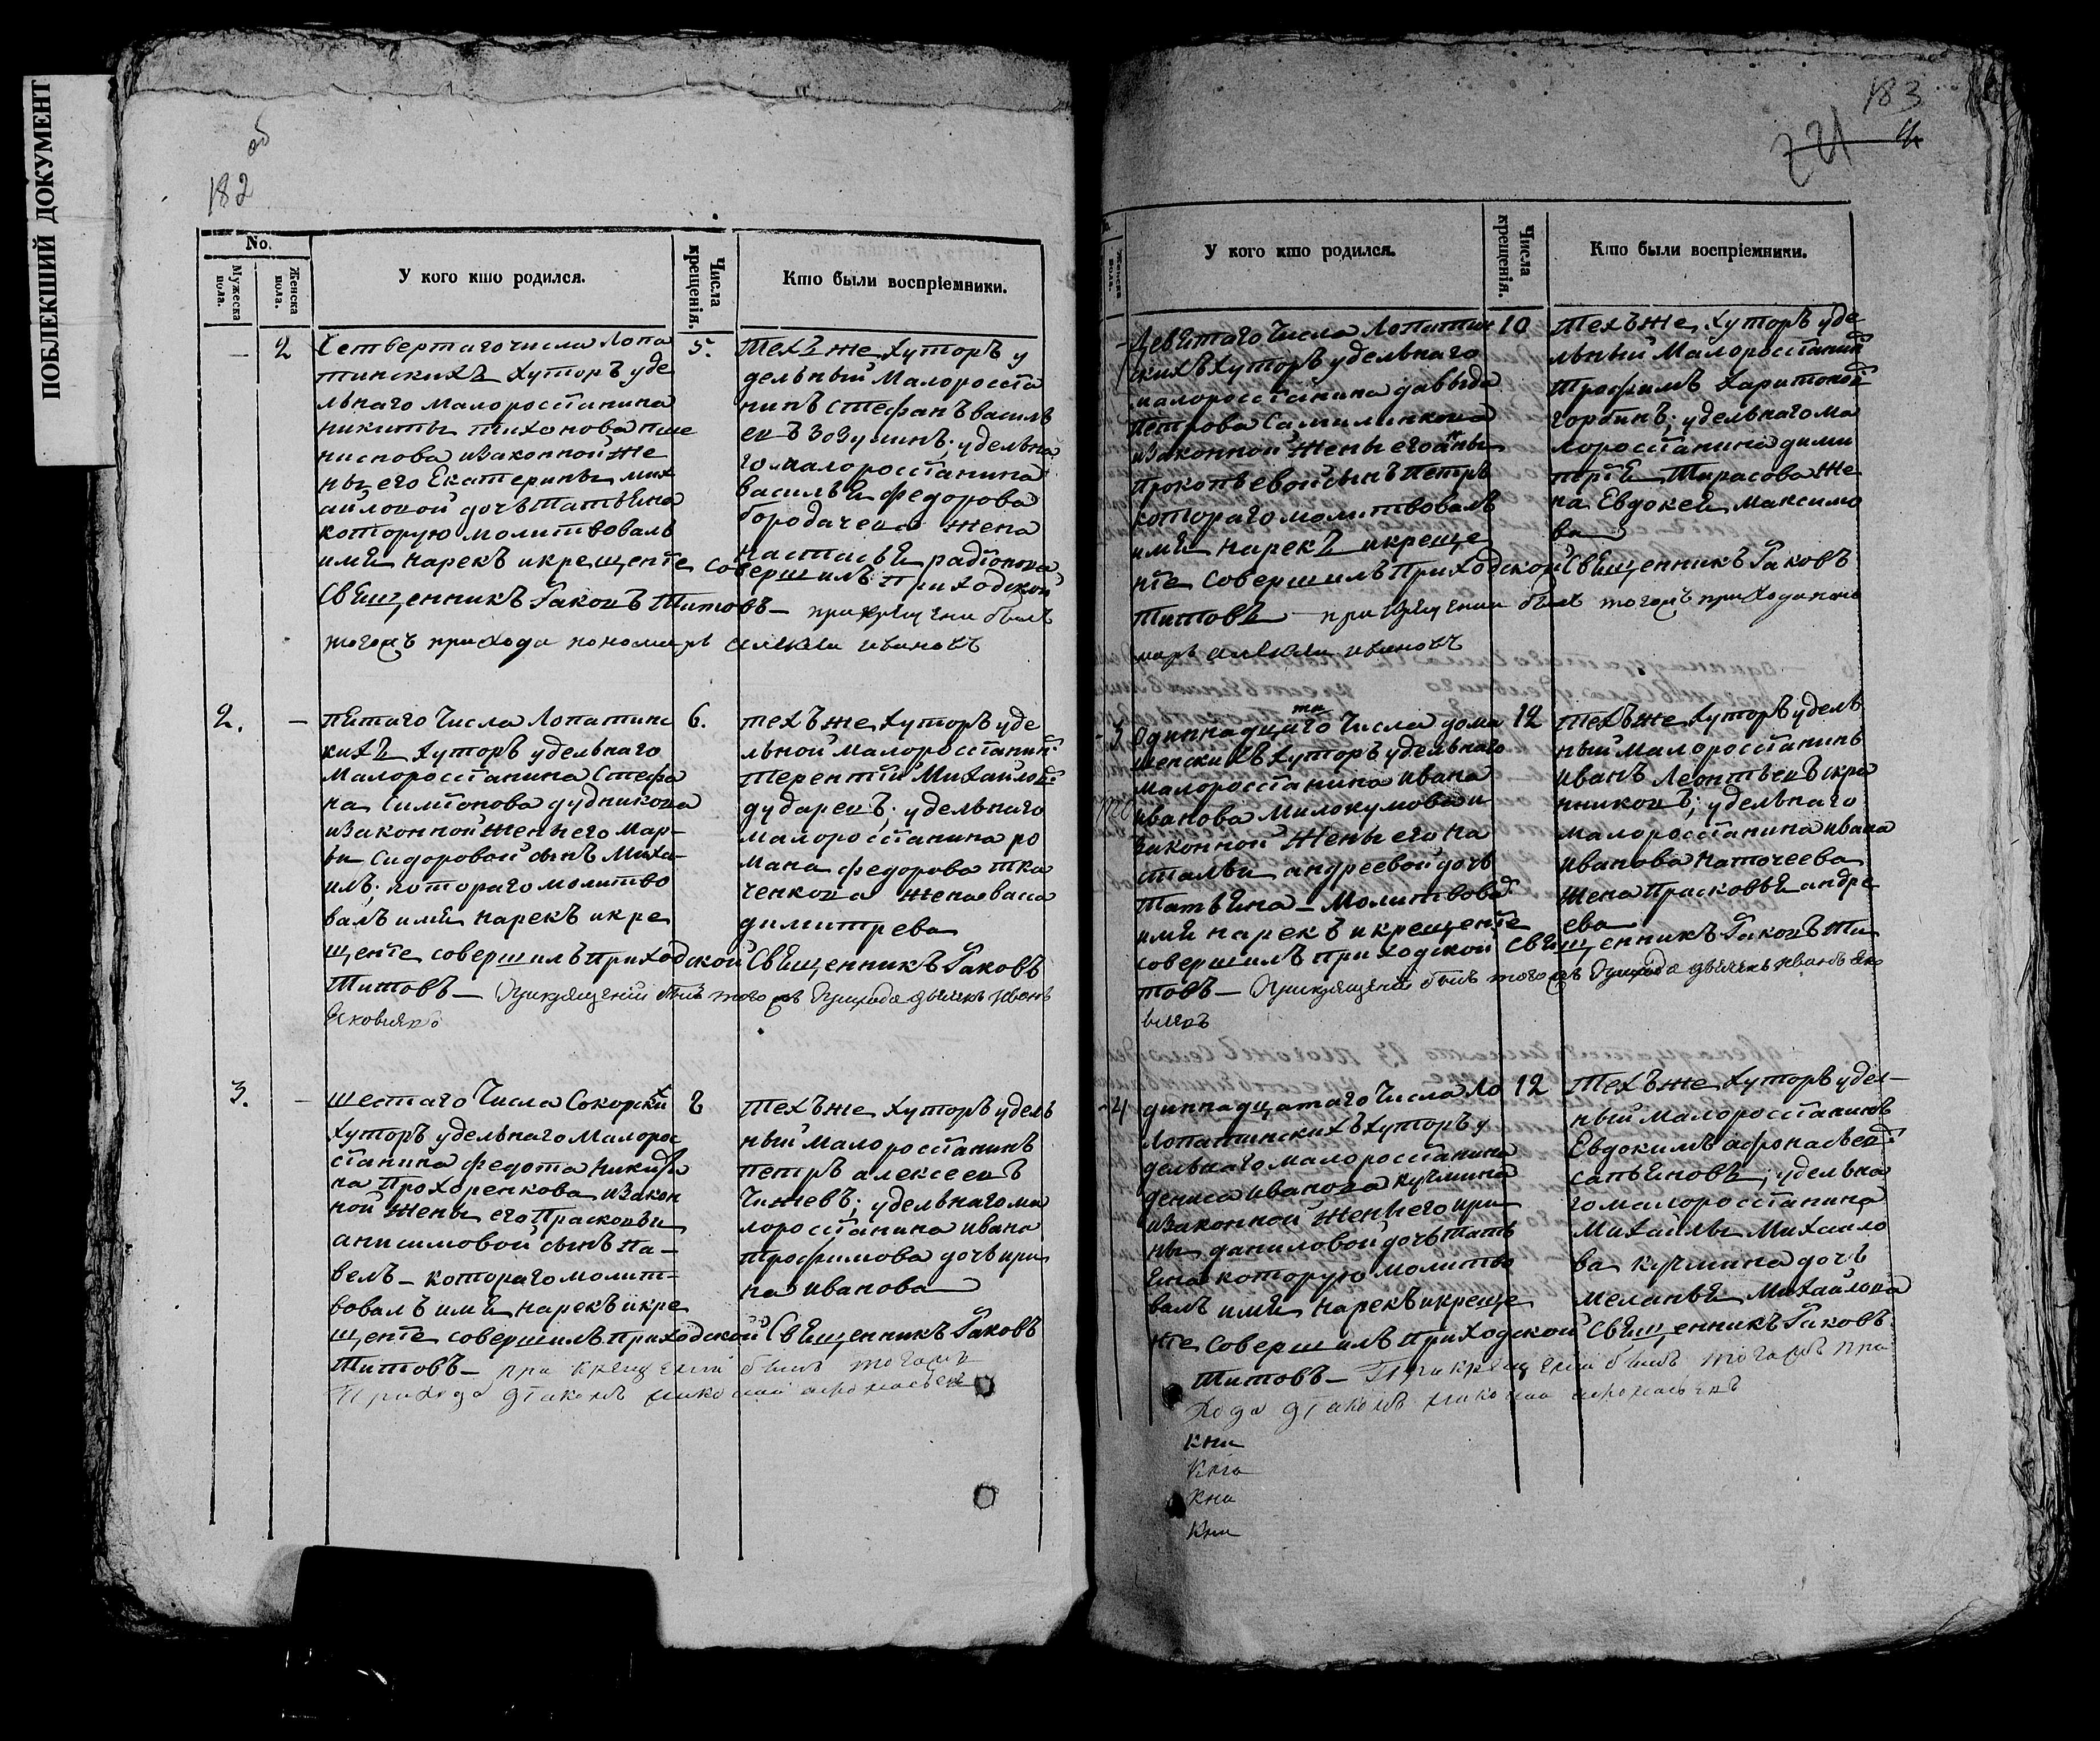 ПОБЛЕКШИЙ ДОКУМЕНТ
об
182
No.
Мужеска пола.
Женска пола.
У кого кто родился.
Числа крещенія.
Кто были воспріемники.
— 2
Четвертаго числа Лопа
тинскихъ хуторъ уде
льнаго малоросстанина
никиты тихонова пше
ниснова изаконной же
ны его Екатерины мих
аиловой дочь татьяна
которую молитвовалъ
имя нарекъ и крещенїе совершилъ приходской
Священникъ Iаковъ Титовъ — при крещени былъ
тогожъ прихода пономаръ алекѣи ивановъ
5.
Тѣхъ же хуторъ у
дельный Малоросста
нинъ стефанъ василь
евъ зозулинъ; удельна
го малоросстанина
василья федорова
бородачева жена
настасья радїонова
2. —
пятаго числа Лопатинс
кихъ хуторъ удельнаго
Малоросстанина Стефа
на Симїонова дудникова
изаконной жены его Мар-
вы Сидоровой сынъ Миха-
илъ; котораго молитво
валъ имя нарекъ и кре
щенїе совершилъ приходской Священникъ Iаковъ
Титовъ — При крещенїи былъ того жъ Прихода дьячекъ Иванъ
Яковлевъ
6.
тѣхъ же хуторъ уде
льной малоросстанинъ
терентїй Михайловъ
дударевъ; удельнаго
малоросстанина ро
мана федорова тка
ченкова жена васса
димитрева
3. —
шестаго Числа Сокорских
хуторъ удельнаго Малорос
станина федота никифо
на Прохоренкова изакон
ной жены его Прасковьи
анисимовой сынъ па-
велъ — котораго молит-
вовалъ имя нарекъ и кре
щенїе совершилъ приходской Священникъ Iаковъ
Титовъ — при крещенїи былъ тогожъ
Прихода дїаконъ николаи афонасьевъ
Тѣхъ же хуторъ удель
ный малоросстанинъ
петръ алексеевъ
Чижевъ; удельнаго ма
лоросстанина ивана
трофимова дочь ири
на иванова
183
У кого кто родился.
Числа крещенія.
Кто были воспріемники.
Девятаго числа Лопатин
скихъ хуторъ удельнаго
малоросстанина давыда
петрова Самилинкова
изаконной жены его анны
прокопьевой сынъ петръ
котораго молитвовалъ
имя нарекъ и креще
нїе совершилъ приходской Священникъ Iаковъ
Титовъ — при крещении былъ тогожъ прихода поно
маръ алекѣи ивановъ
10
Тѣхъ же хуторъ уде
льный Малоросстанинъ
трофимъ харитоновъ
горбинъ; удельнаго ма
лоросстанина дими
трїя Тарасова же
на Евдокея максимо
ва
3
Одиннадцатаго числа дома
шенскихъ хуторъ удельнаго
малоросстанина ивана
иванова Милокумова и
законной жены его на
стальи андреевой дочь
татьяна — Молитвовалъ
имя нарекъ и крещенїе
совершилъ приходской священникъ Iаковъ Ти
товъ — При крещенїи былъ тогожъ Прихода дьячекъ Иванъ Яко
влевъ
12
Тѣхъ же хуторъ удель
ный малоросстанинъ
иванъ Леонтьевъ скра
нниковъ; удельнаго
малоросстанина ивана
иванова наточеева
жена Прасковья андре
ева
4
диннадцатаго Числа Ло
Лопатинскихъ хуторъ у
дельнаго малоросстанина
дениса иванова кучмина
изаконной жены его ири
ны даниловой дочь тать
яна которую молитво
валъ имя нарекъ и креще
нїе совершилъ приходской Священникъ Iаковъ
Титовъ — При крещенїи былъ тогожъ при
хода дїаконъ николаи афонасьевъ
12
Тѣхъ же хуторъ удел-
ный малоросстанинъ
Евдокимъ афонасьевъ
сапьяновъ; удельна
го малоросстанина
Михайлы Михайло
ва кучмина дочь
меланья Михайлова
кни
Кни
кни
Кни